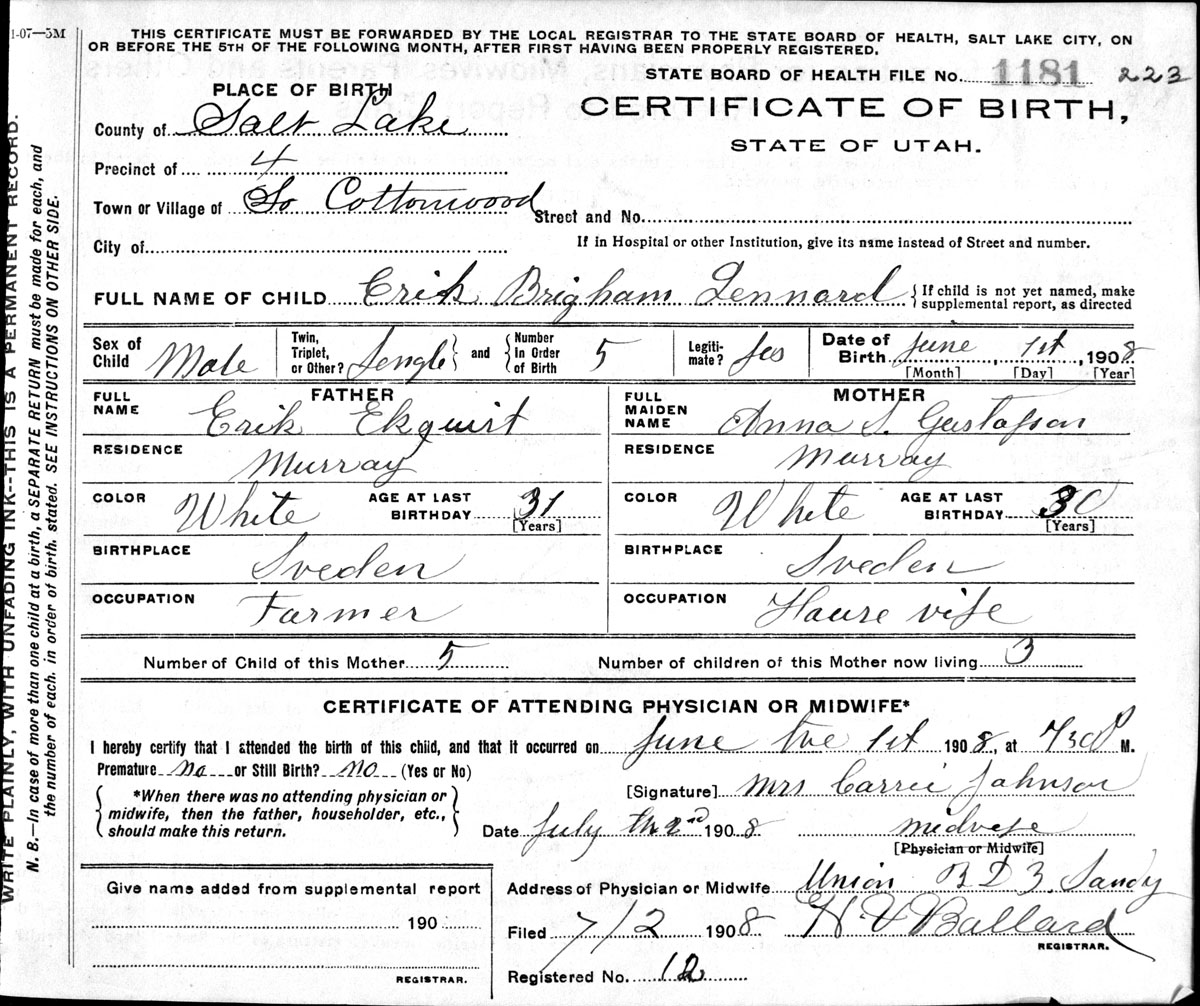 1-07—5M
THIS CERTIFICATE MUST BE FORWARDED BY THE LOCAL REGISTRAR TO THE STATE BOARD OF HEALTH, SALT LAKE CITY, ON
OR BEFORE THE 5TH OF THE FOLLOWING MONTH, AFTER FIRST HAVING BEEN PROPERLY REGISTERED.
STATE BOARD OF HEALTH FILE No. 1181 223
PLACE OF BIRTH
CERTIFICATE OF BIRTH,
STATE OF UTAH.
County of Salt Lake
Precinct of 4
Town or Village of So Cottonwood Street and No.
City of If in Hospital or other Institution, give its name instead of Street and number.
FULL NAME OF CHILD Erik Brigham Lennard { If child is not yet named, make
supplemental report, as directed
Sex of Child Male Twin, Triplet, or Other? Sengle } and { Number in Order of Birth 5 Legiti-mate? Jes Date of Birth June, 1st, 1908
[Month] [Day] [Year]
FATHER MOTHER
FULL NAME Erik Ekquist FULL MAIDEN NAME Anna S. Gustafson
RESIDENCE Murray RESIDENCE Murray
COLOR White AGE AT LAST BIRTHDAY 31 [Years] COLOR White AGE AT LAST BIRTHDAY 30 [Years]
BIRTHPLACE Sveden BIRTHPLACE Sveden
OCCUPATION Farmer OCCUPATION House vife
Number of Child of this Mother 5 Number of children of this Mother now living 3
CERTIFICATE OF ATTENDING PHYSICIAN OR MIDWIFE*
I hereby certify that I attended the birth of this child, and that it occurred on June the 1st 1908, at 730 P M.
Premature no or Still Birth? no (Yes or No)
{ *When there was no attending physician or
midwife, then the father, householder, etc.,
should make this return. }
[Signature] Mrs Carrie Johnson
Date July th 2nd 1908 midvife
[Physician or Midwife]
Give name added from supplemental report
190
REGISTRAR.
Address of Physician or Midwife Union R D 3. Sandy
Filed 7/2 1908 H V Ballard
REGISTRAR.
Registered No. 12
WRITE PLAINLY, WITH UNFADING INK--THIS IS A PERMANENT RECORD.
N. B.—In case of more than one child at a birth, a SEPARATE RETURN must be made for each, and
the number of each, in order of birth, stated. SEE INSTRUCTIONS ON OTHER SIDE.